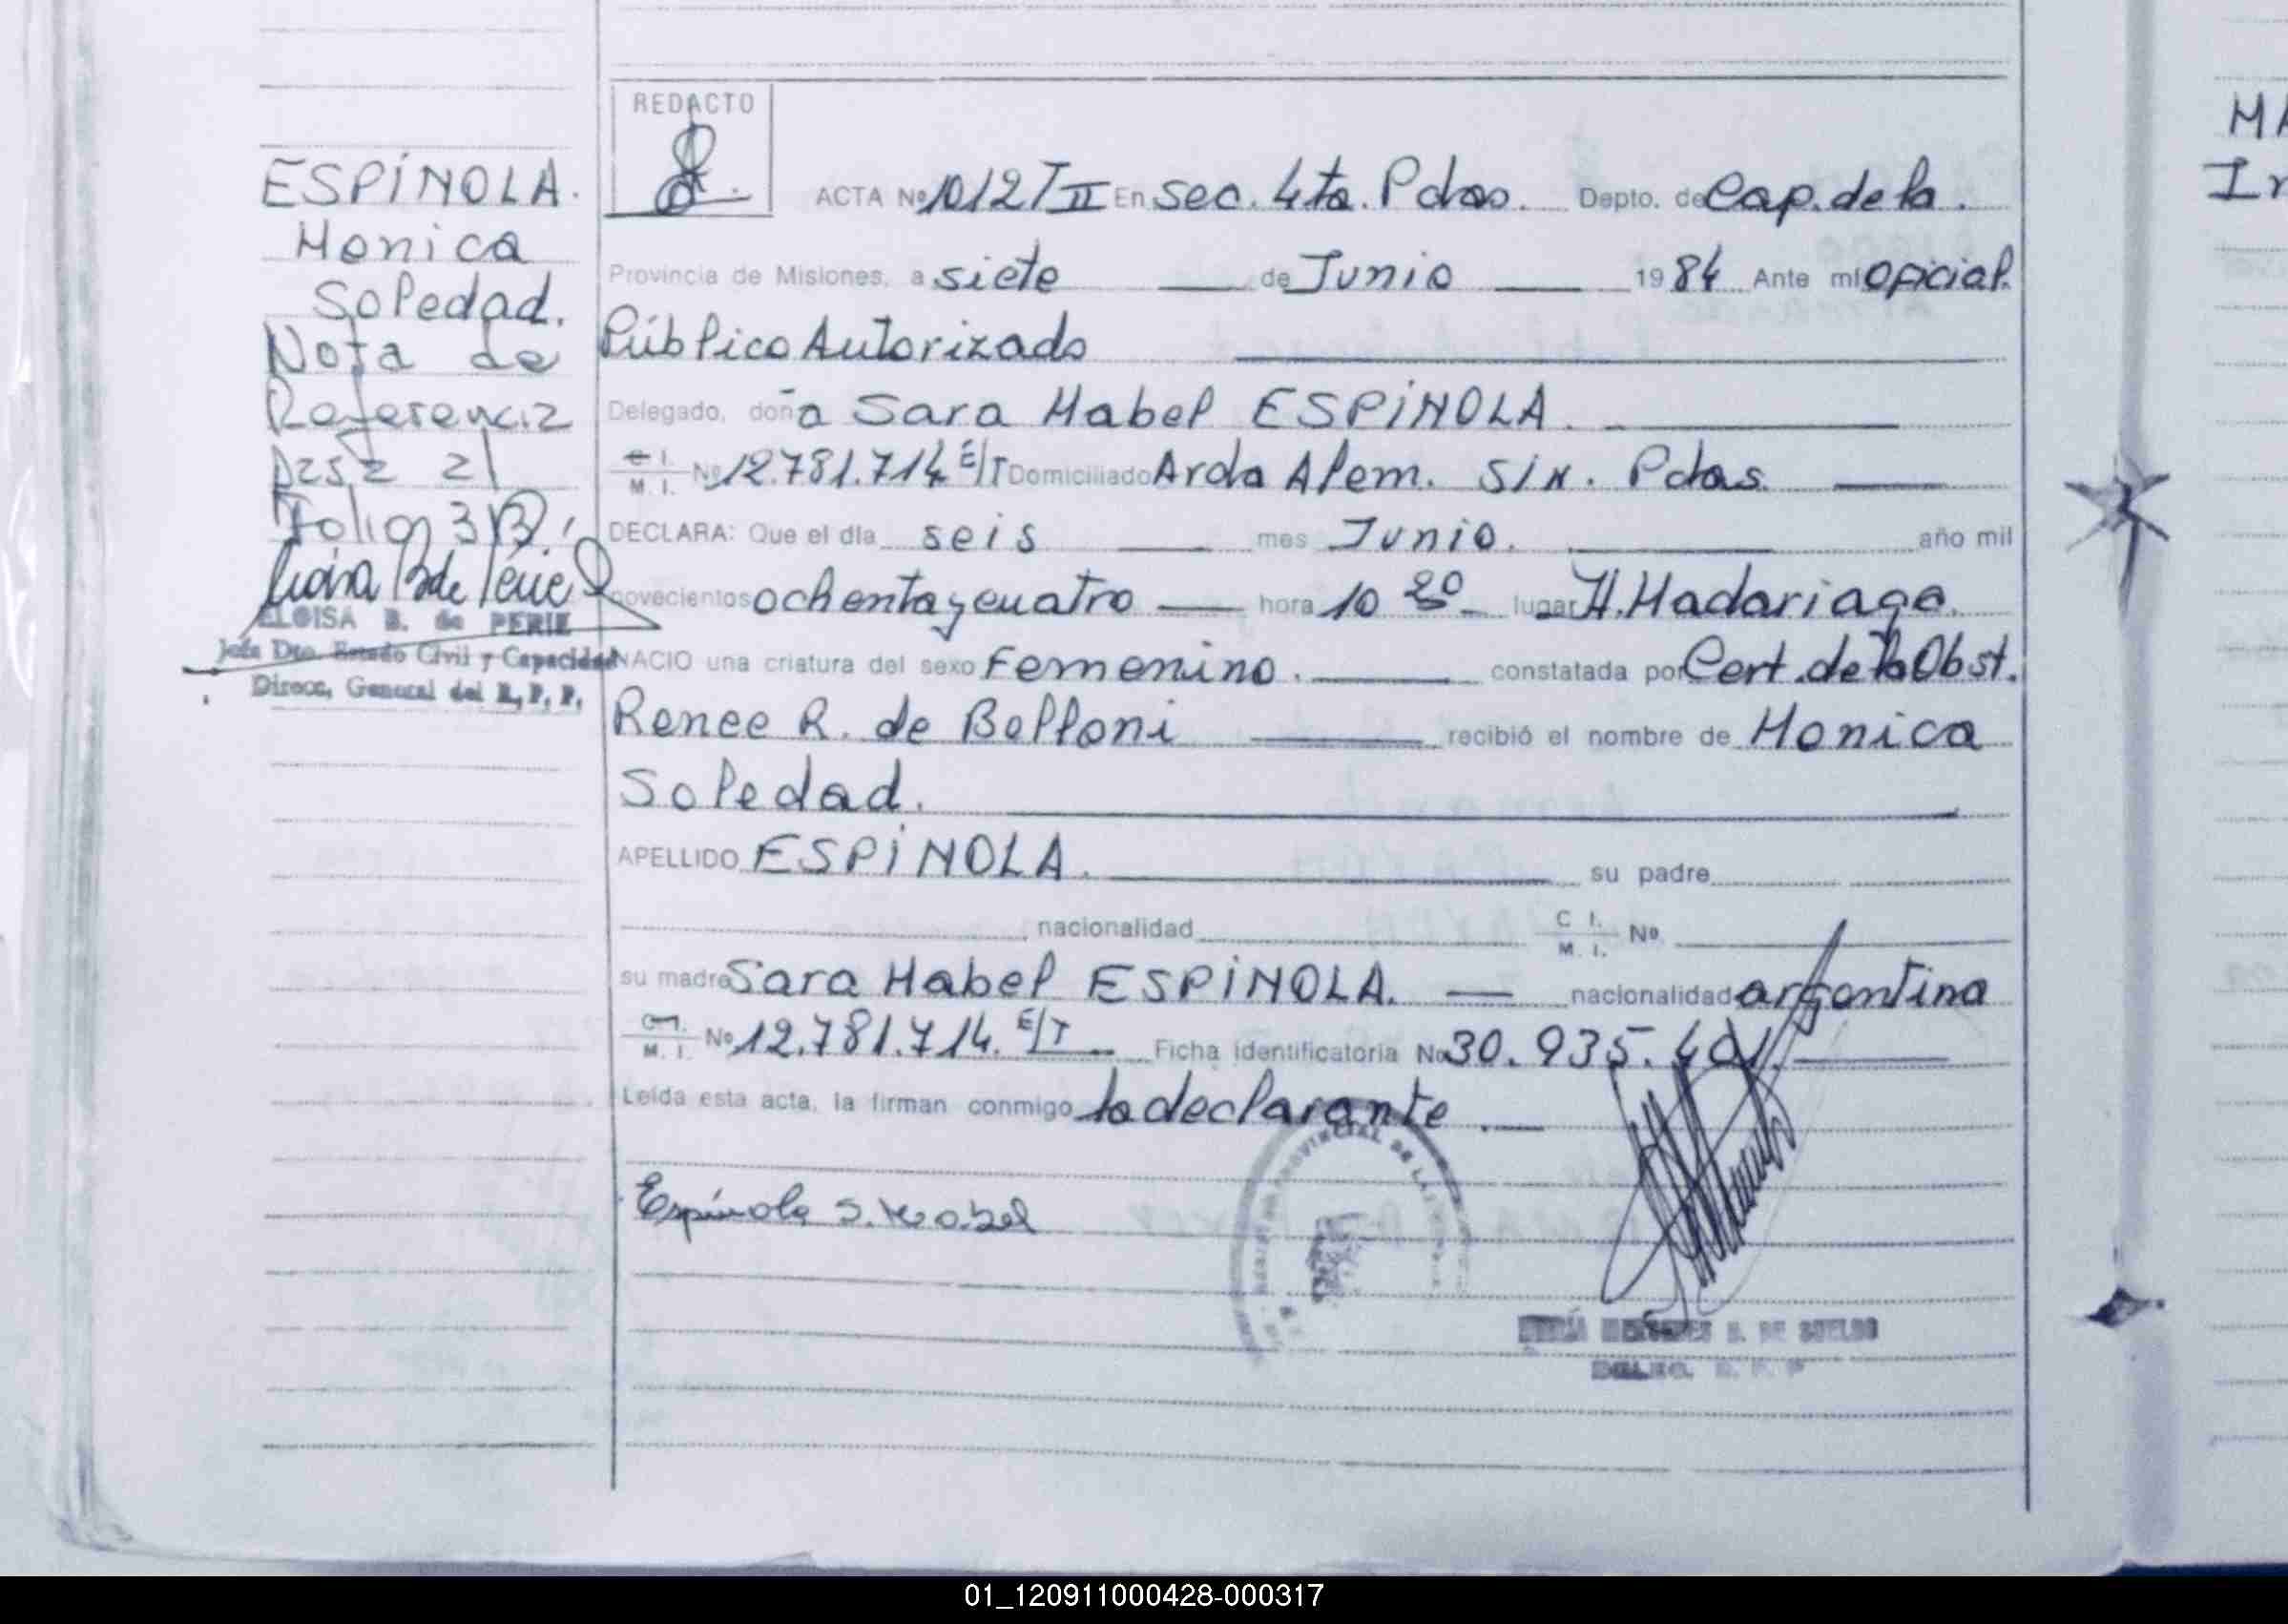 ESPÍNOLA.
Monica
Soledad.
Nota de
Referencia
pasa al
Folio 313
ELOISA B. de PERIE
Jefa Dto. Estado Civil y Capacidad
Direcc. General del R. P. P.
REDACTO
ACTA Nº 1012 T II En Sec. 4ta. Pdas. Depto. de Cap. de la.
Provincia de Misiones, a siete de Junio 1984 Ante mí oficial.
Público Autorizado
Delegado, doña Sara Mabel ESPÍNOLA.
C. I.
M. I. Nº 12.781.714 E/T Domiciliado Avda Alem. S/N. Pdas.
DECLARA: Que el día seis mes Junio. año mil
novecientos ochenta y cuatro hora 10 20 lugar H. Madariaga.
NACIO una criatura del sexo Femenino. constatada por Cert. de la Obst.
Renee R. de Belloni recibió el nombre de Monica
Soledad.
APELLIDO ESPÍNOLA. su padre
nacionalidad C. I. Nº
M. I.
su madre Sara Mabel ESPÍNOLA. nacionalidad argentina
C. I.
M. I. Nº 12.781.714. E/T Ficha identificatoria No 30.935.401.
Leída esta acta, la firman conmigo la declarante.
PROVINCIAL DE LA
Espínola S. Mabel
MARÍA MERCEDES S. DE SUELDO
DELEG. R. P. P
MA
In
01_120911000428-000317